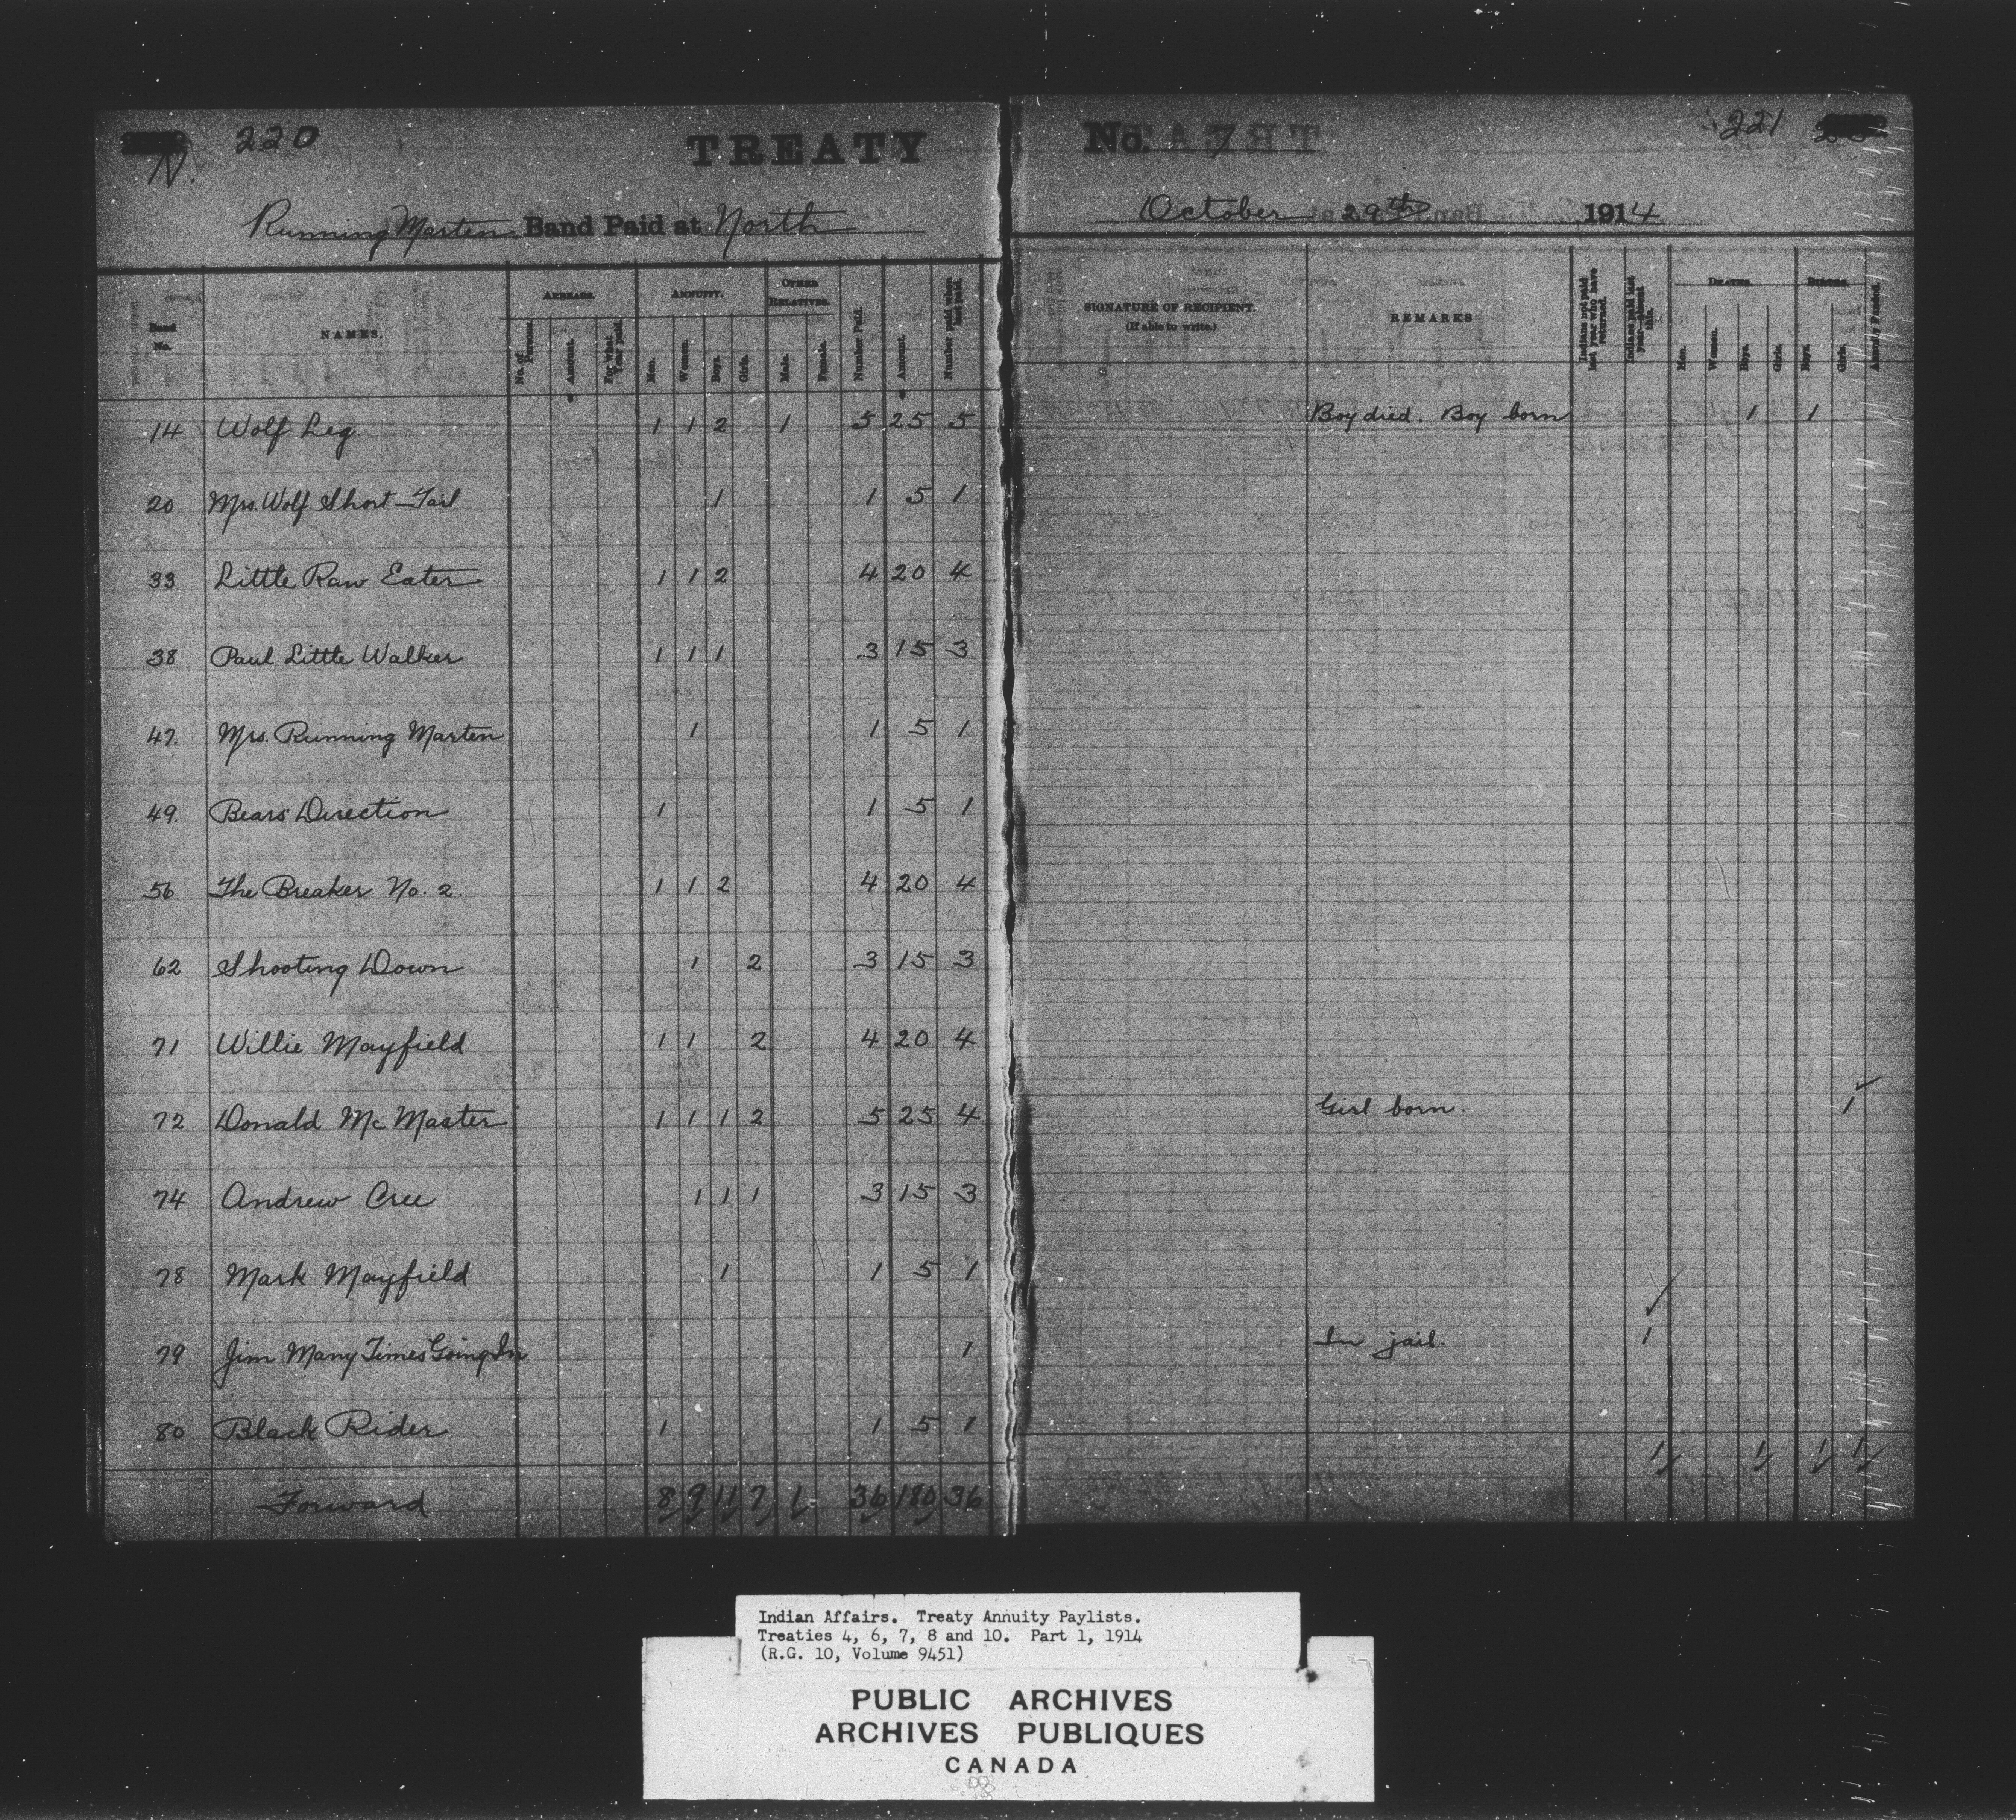 N. 220 TREATY No. 7 221
Running Marten Band Paid at North October 29th 1914
Band No. NAMES. ARREARS. ANNUITY. OTHER RELATIVES. Number Paid. Amount. Number paid when last paid. SIGNATURE OF RECIPIENT. REMARKS Indians not paid last year who have returned. Indians paid last year—absent this. DEATHS. BIRTHS.
(If able to write.)
No. of Persons. Amount. For what Year paid. Men. Women. Boys. Girls. Male. Female. Men. Women. Boys. Girls. Boys. Girls.
14 Wolf Leg 1 1 2 1 5 25 5 Boy died. Boy born 1 1
20 Mrs. Wolf Short-Tail 1 1 5 1
33 Little Raw Eater 1 1 2 4 20 4
38 Paul Little Walker 1 1 1 3 15 3
47. Mrs. Running Marten 1 1 5 1
49. Bears Direction 1 1 5 1
56 The Breaker No. 2. 1 1 2 4 20 4
62 Shooting Down 1 2 3 15 3
71 Willie Mayfield 1 1 2 4 20 4
72 Donald McMaster 1 1 1 2 5 25 4 Girl born. 1
74 Andrew Cree 1 1 1 3 15 3
78 Mark Mayfield 1 1 5 1
79 Jim Many Times Going In 1 In jail. 1
80 Black Rider 1 1 5 1
Forward 8 9 11 7 1 36 180 36 1 1 1 1
Indian Affairs. Treaty Annuity Paylists.
Treaties 4, 6, 7, 8 and 10. Part 1, 1914
(R.G. 10, Volume 9451)
PUBLIC ARCHIVES
ARCHIVES PUBLIQUES
CANADA